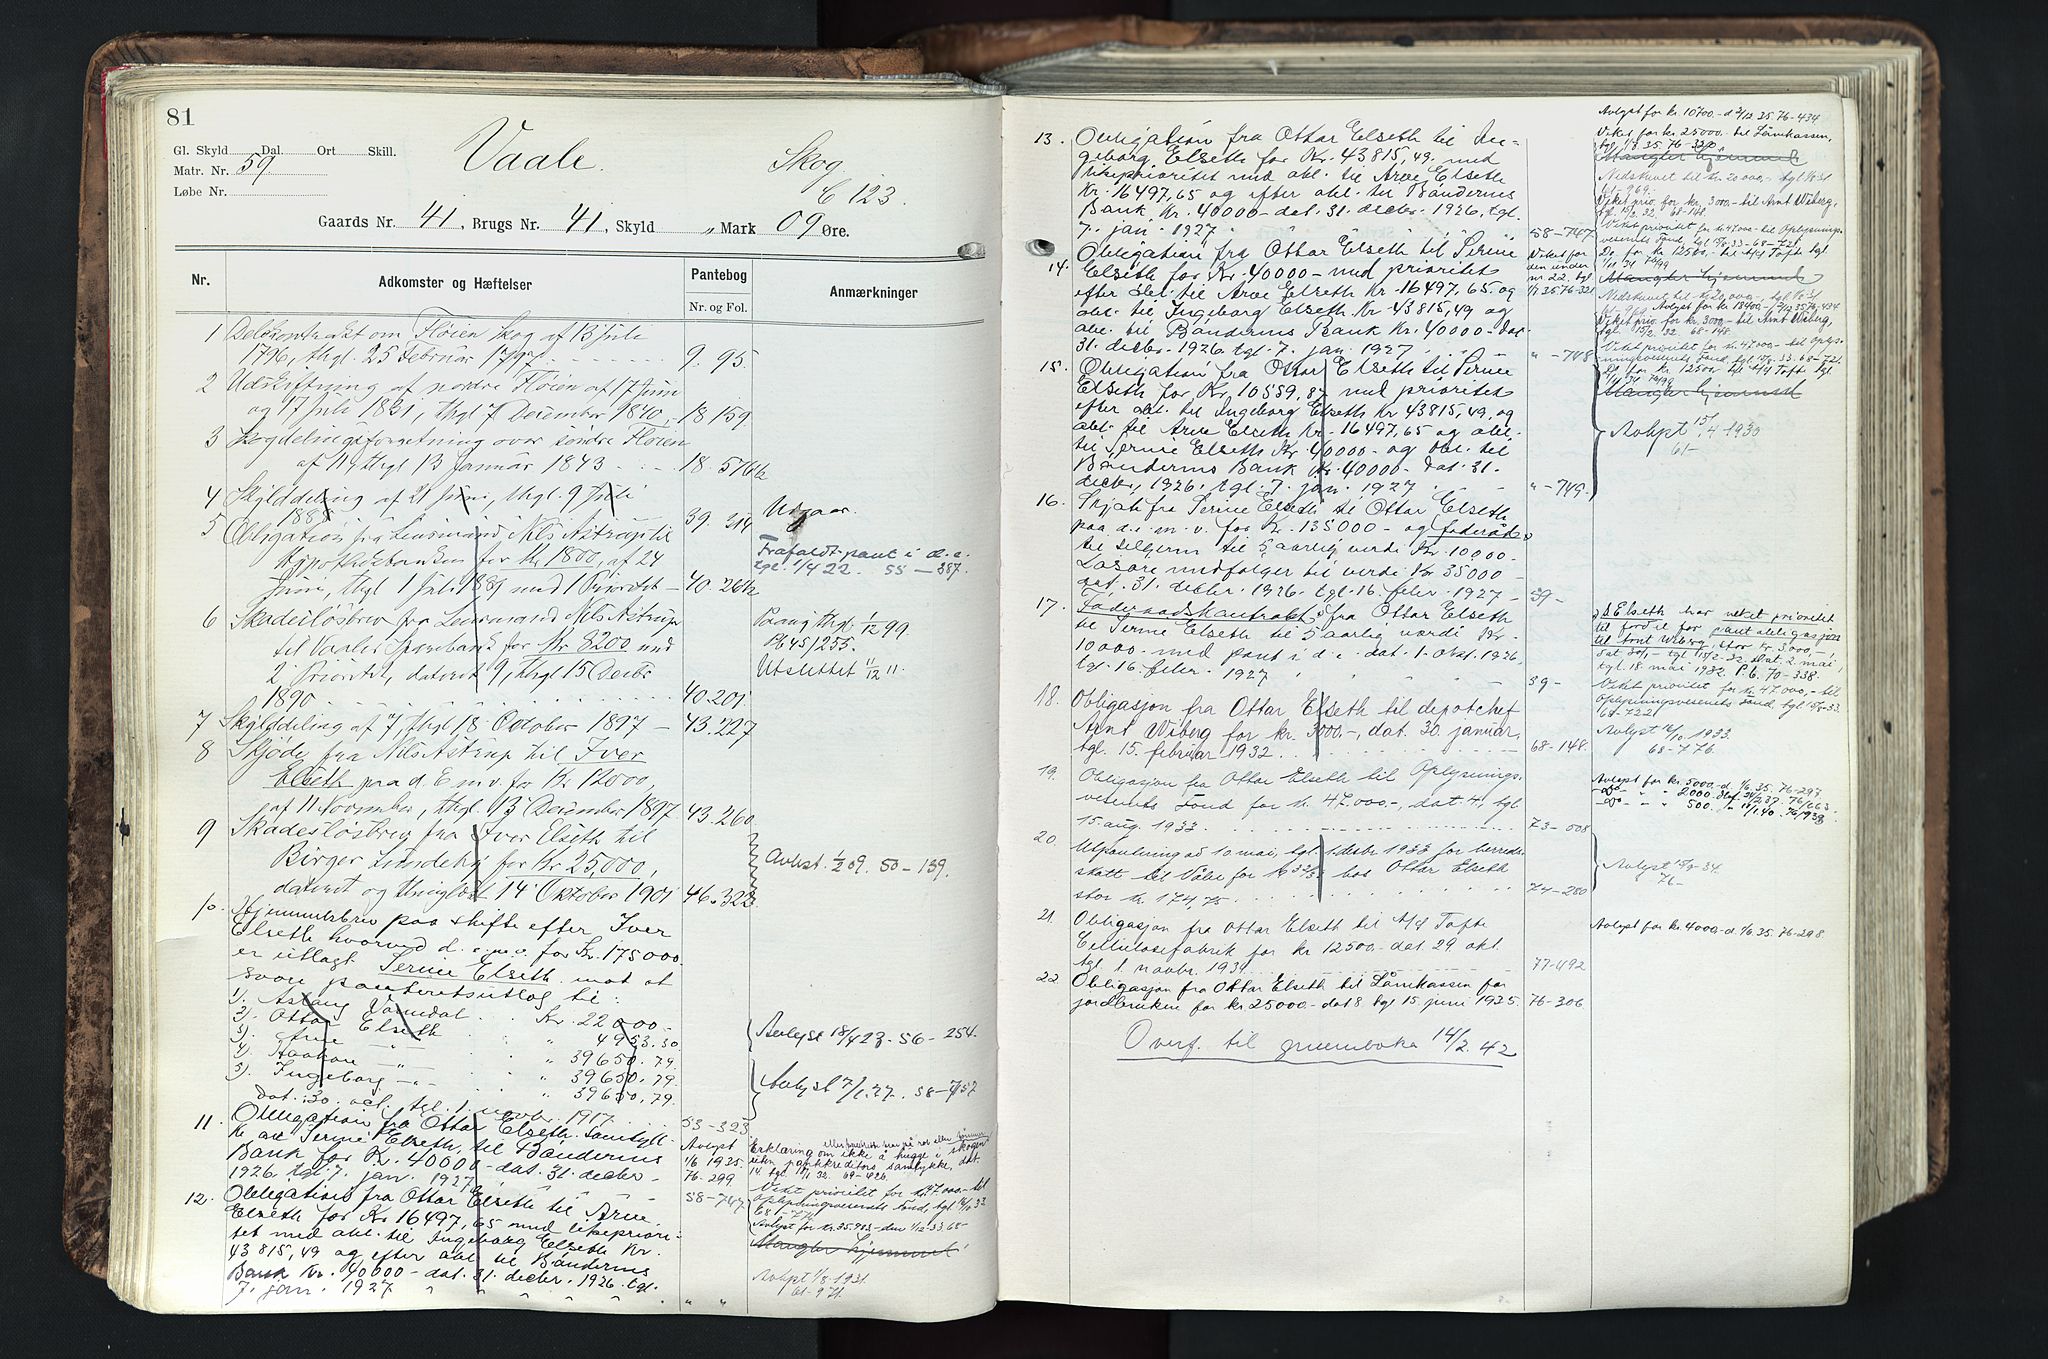 81
Gl. Skyld Dal. Ort Skill.
Matr. Nr. 59.
Løbe Nr.
Vaale. Skog.
C 123.
Gaards Nr. 41, Brugs Nr. 41, Skyld „ Mark 09 Øre.
Nr. Adkomster og Hæftelser Pantebog Anmærkninger
Nr. og Fol.
1 Delekontrakt om Fløien Skog af 13 Juli
1796, thgl. 25 Februar 9. 95
2 Udskiftning af nordre Fløien af 17 Juni
og 17 Juli 1831, thgl 7 December 1840, 18 159
3 søndre Fløien
af 11, thgl 13 Januar 1843 18. 576b
4 Skylddeling af 21 Juni, thgl. 9 Juli
188 39. 314 Udgaar.
5 Obligation fra Lensmand Nils Astrup til
Hypothekbanken for Kr 1800, af 24
Juni, thgl 1 Juli 1889 med 1 Prioritet 40. 26b
Frafaldt pant i d. e.
tgl. 1/4 22. 55 – 387.
6 Skadesløsbrev fra Lensmand Nils Astrup
til Vaaler Sparebank for Kr 8200 med
2 Prioritet, dateret 9, thgl 15 Decbr
1890 40. 201
thgl. 1/12 99
Pb 45/255.
Utslettet 11/12 11.
7 Skylddeling af 7, thgl 18 October 1897 – 43. 227
8 Skjøde fra Nils Astrup til Iver
Elseth paa d. E m. v. for Kr 12000,
af 11 November, thgl. 13 December 1897 43. 260
9 Skadesløsbrev fra Iver Elseth til
Birger Lundeby for Kr 25,000,
dateret og thinglæst 14 Oktober 1901 46. 322
Avlyst. 1/2 09. 50 – 139.
10. Hjemmelsbrev paa skifte efter Iver
Elseth hvorved d. e. m. v. for Kr. 175000.
er utlagt Serine Elseth mot at
svare panteretsutlæg til:
1). Aslaug Kr. 22000 –
2). Ottar Elseth „ 4953. 30
3). Arne –„– „ 39650. 79.
4). Haakon –„– „ 39650. 79.
5). Ingeborg –„– „ 39650. 79.
dat. 30. oct. tgl. 1. novbr. 1917. 53 – 323
Avlyst 18/4 23 – 56 – 254.
Avlyst 7/1. 27. 58 – 757
11. Obligation fra Ottar Elseth. Samtykke
av Serine Elseth, til Bøndernes
Bank for Kr. 40000 – dat. 31. decbr
1926 tgl. 7. jan. 1927
Avlyst
1/6 1935.
76 – 299.
Erklæring om ikke å hugge i skogen
uten pantkreditors samtykke, dat.
12. Obligation fra Ottar Elseth til Arne 58 – 747
Elseth for Kr 16497, 65 med likepriori-
tet med obl. til Ingeborg Elseth Kr.
43815, 49 og efter obl til Bøndernes
Bank Kr. 40000 – dat. 31. decbr. 1926. tgl.
7. jan. 1927 „ „
Veket prioritet for kr 47000.– til
Oplysningsvesenets Fond, tgl
Mangler hjemmel
Avlyst 1/8. 1931.
61 – 971.
13. Obligation fra Ottar Elseth til In-
geborg Elseth for Kr. 43815, 49. med
likeprioritet med obl. til Arne Elseth
Kr. 16497, 65 og efter obl. til Bøndernes
Bank Kr. 40000 – dat. 31. decbr. 1926, tgl.
7. jan. 1927 58 – 747
Avlyst for kr. 10700.– d 2/12 35. 76 – 434
Veket for kr. 25000 – til Lånekassen,
Mangler hjemmel
Veket prio. for kr. 3000.– til Arnt Wiberg,
tgl. 15/2. 32. 68 – 148.
Veket prioritet for kr. 47000 – til Oplysnings-
vesenets Fond
14. Obligation fra Ottar Elseth til Serine
Elseth for Kr. 40000 – med prioritet
efter obl. til Arne Elseth Kr – 16497, 65. og
obl. til Ingeborg Elseth Kr 43815, 49 og
obl. til Bøndernes Bank Kr. 40000 – dat
31. decbr. 1926 tgl. 7. jan. 1927 „ – 748
Veket for
den under
nr 22. tgl.
Mangler hjemmel
Veket prio. for kr. 3000 – til Arnt Wiberg,
tgl. 15/2. 32 68 – 148.
15. Obligation fra Ottar Elseth til Serine
Elseth for Kr. 10559, 87 med prioritet
efter obl. til Ingeborg Elseth Kr 43815, 49, og
obl. til Arne Elseth Kr. – 16497, 65 og obl.
til Serine Elseth Kr. 40000 – og obl. til
Bøndernes Bank Kr. 40000 – dat. 31.
decbr. 1926. tgl. 7. jan. 1927 „ – 749.
Mangler hjemmel
Avlyst 15/4 1930
61 –
16. Skjøte fra Serine Elseth til Ottar Elseth
paa d. e. m. v. for Kr. 135000 – og føderåd
til selgeren til 5 aarlig verdi Kr. 10000 –
Løsøre medfølger til verdi Kr 35000 –
dat. 31. decbr. 1926 – tgl. 16. febr. 1927 – 59 –
17. Føderaadskontrakt fra Ottar Elseth
til Serine Elseth til 5 aarlig verdi Kr. –
10000 – med pant i d. e. dat. 1. okt. 1926,
tgl. 16. febr. 1927 59 –
S Elseth har veket prioritet
til fordel for pantobligasjon
til Arnt Wiberg, stor kr. 3000,–,
tgl. 18. mai 1932. P. b. 70 – 338.
Veket prioritet for kr. 47000,– til
Oplysningsvesenets Fond
68 – 722
18. Obligasjon fra Ottar Elseth til depotchef
Arnt Wiberg for kr. 3000.–, dat. 30. januar,
tgl. 15. februar 1932. 68 – 148.
Avlyst 16/10. 1933.
68 – 776.
19. Obligasjon fra Ottar Elseth til Oplysnings-
vesenets Fond for kr. 47.000.–, dat. 4, tgl.
15. aug. 1933. 73 – 508
Avlyst for kr. 5000.– d. 1/6. 35. 76 – 297
20. Utpantning ad 10 mai, tgl. 1 desbr 1933 for herreds-
skatt til Våler for 1932/33 hos Ottar Elseth
stor kr. 174,75. 74 – 280
Avlyst 15/8 – 34.
76 –
21. Obligasjon fra Ottar Elseth til A/S Tofte
Cellulosefabrik for kr 12500 – dat 29. okt.
tgl 1. novbr. 1934 77 – 492
Avlyst for kr. 4000 – d. 1/6. 35. 76 – 298
22. Obligasjon fra Ottar Elseth til Lånekassen for
jordbrukere for kr 25000. – dat 8 tgl 15. juni 1935. 76 – 306
Overf. til grunnboka 14/2. 42